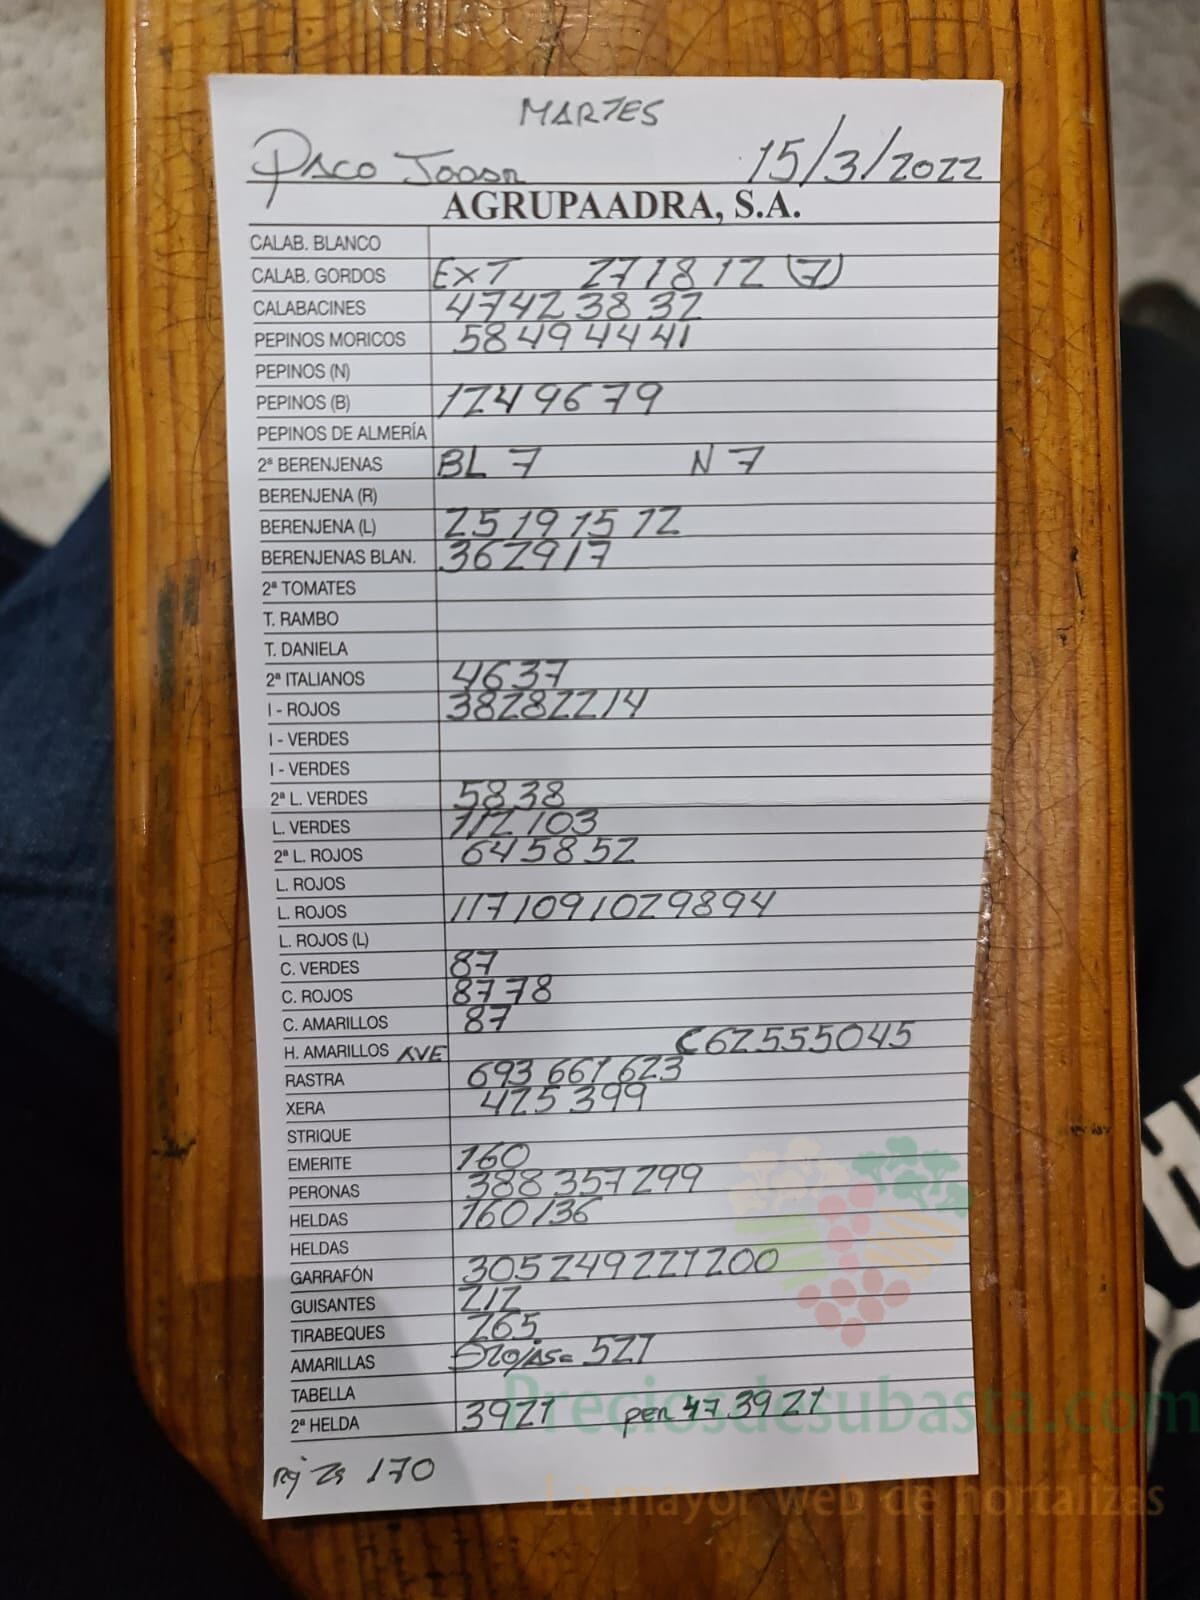 MARTES
PACO 15/3/2022
AGRUPAADRA, S.A.
CALAB. BLANCO
CALAB. GORDOS EXT 27 18 12 (7)
CALABACINES 47 42 38 32
PEPINOS MORICOS 58 49 44 41
PEPINOS (N)
PEPINOS (B) 124 96 79
PEPINOS DE ALMERÍA
2ª BERENJENAS BL 7 N 7
BERENJENA (R)
BERENJENA (L) 25 19 15 12
BERENJENAS BLAN. 36 29 17
2ª TOMATES
T. RAMBO
T. DANIELA
2ª ITALIANOS 46 37
I - ROJOS 38 28 22 14
I - VERDES
I - VERDES
2ª L. VERDES 58 38
L. VERDES 112 103
2ª L. ROJOS 64 58 52
L. ROJOS
L. ROJOS 117 109 102 98 94
L. ROJOS (L)
C. VERDES 87
C. ROJOS 87 78
C. AMARILLOS 87
H. AMARILLOS AVE C 62 55 50 45
RASTRA 693 661 623
XERA 425 399
STRIQUE
EMERITE 160
PERONAS 388 357 299
HELDAS 160 136
HELDAS
GARRAFÓN 305 249 221 200
GUISANTES 212
TIRABEQUES 265
AMARILLAS 521
TABELLA
2ª HELDA 39 21 per 47 39 21
170
Preciosdesubasta.com
La mayor web de hortalizas